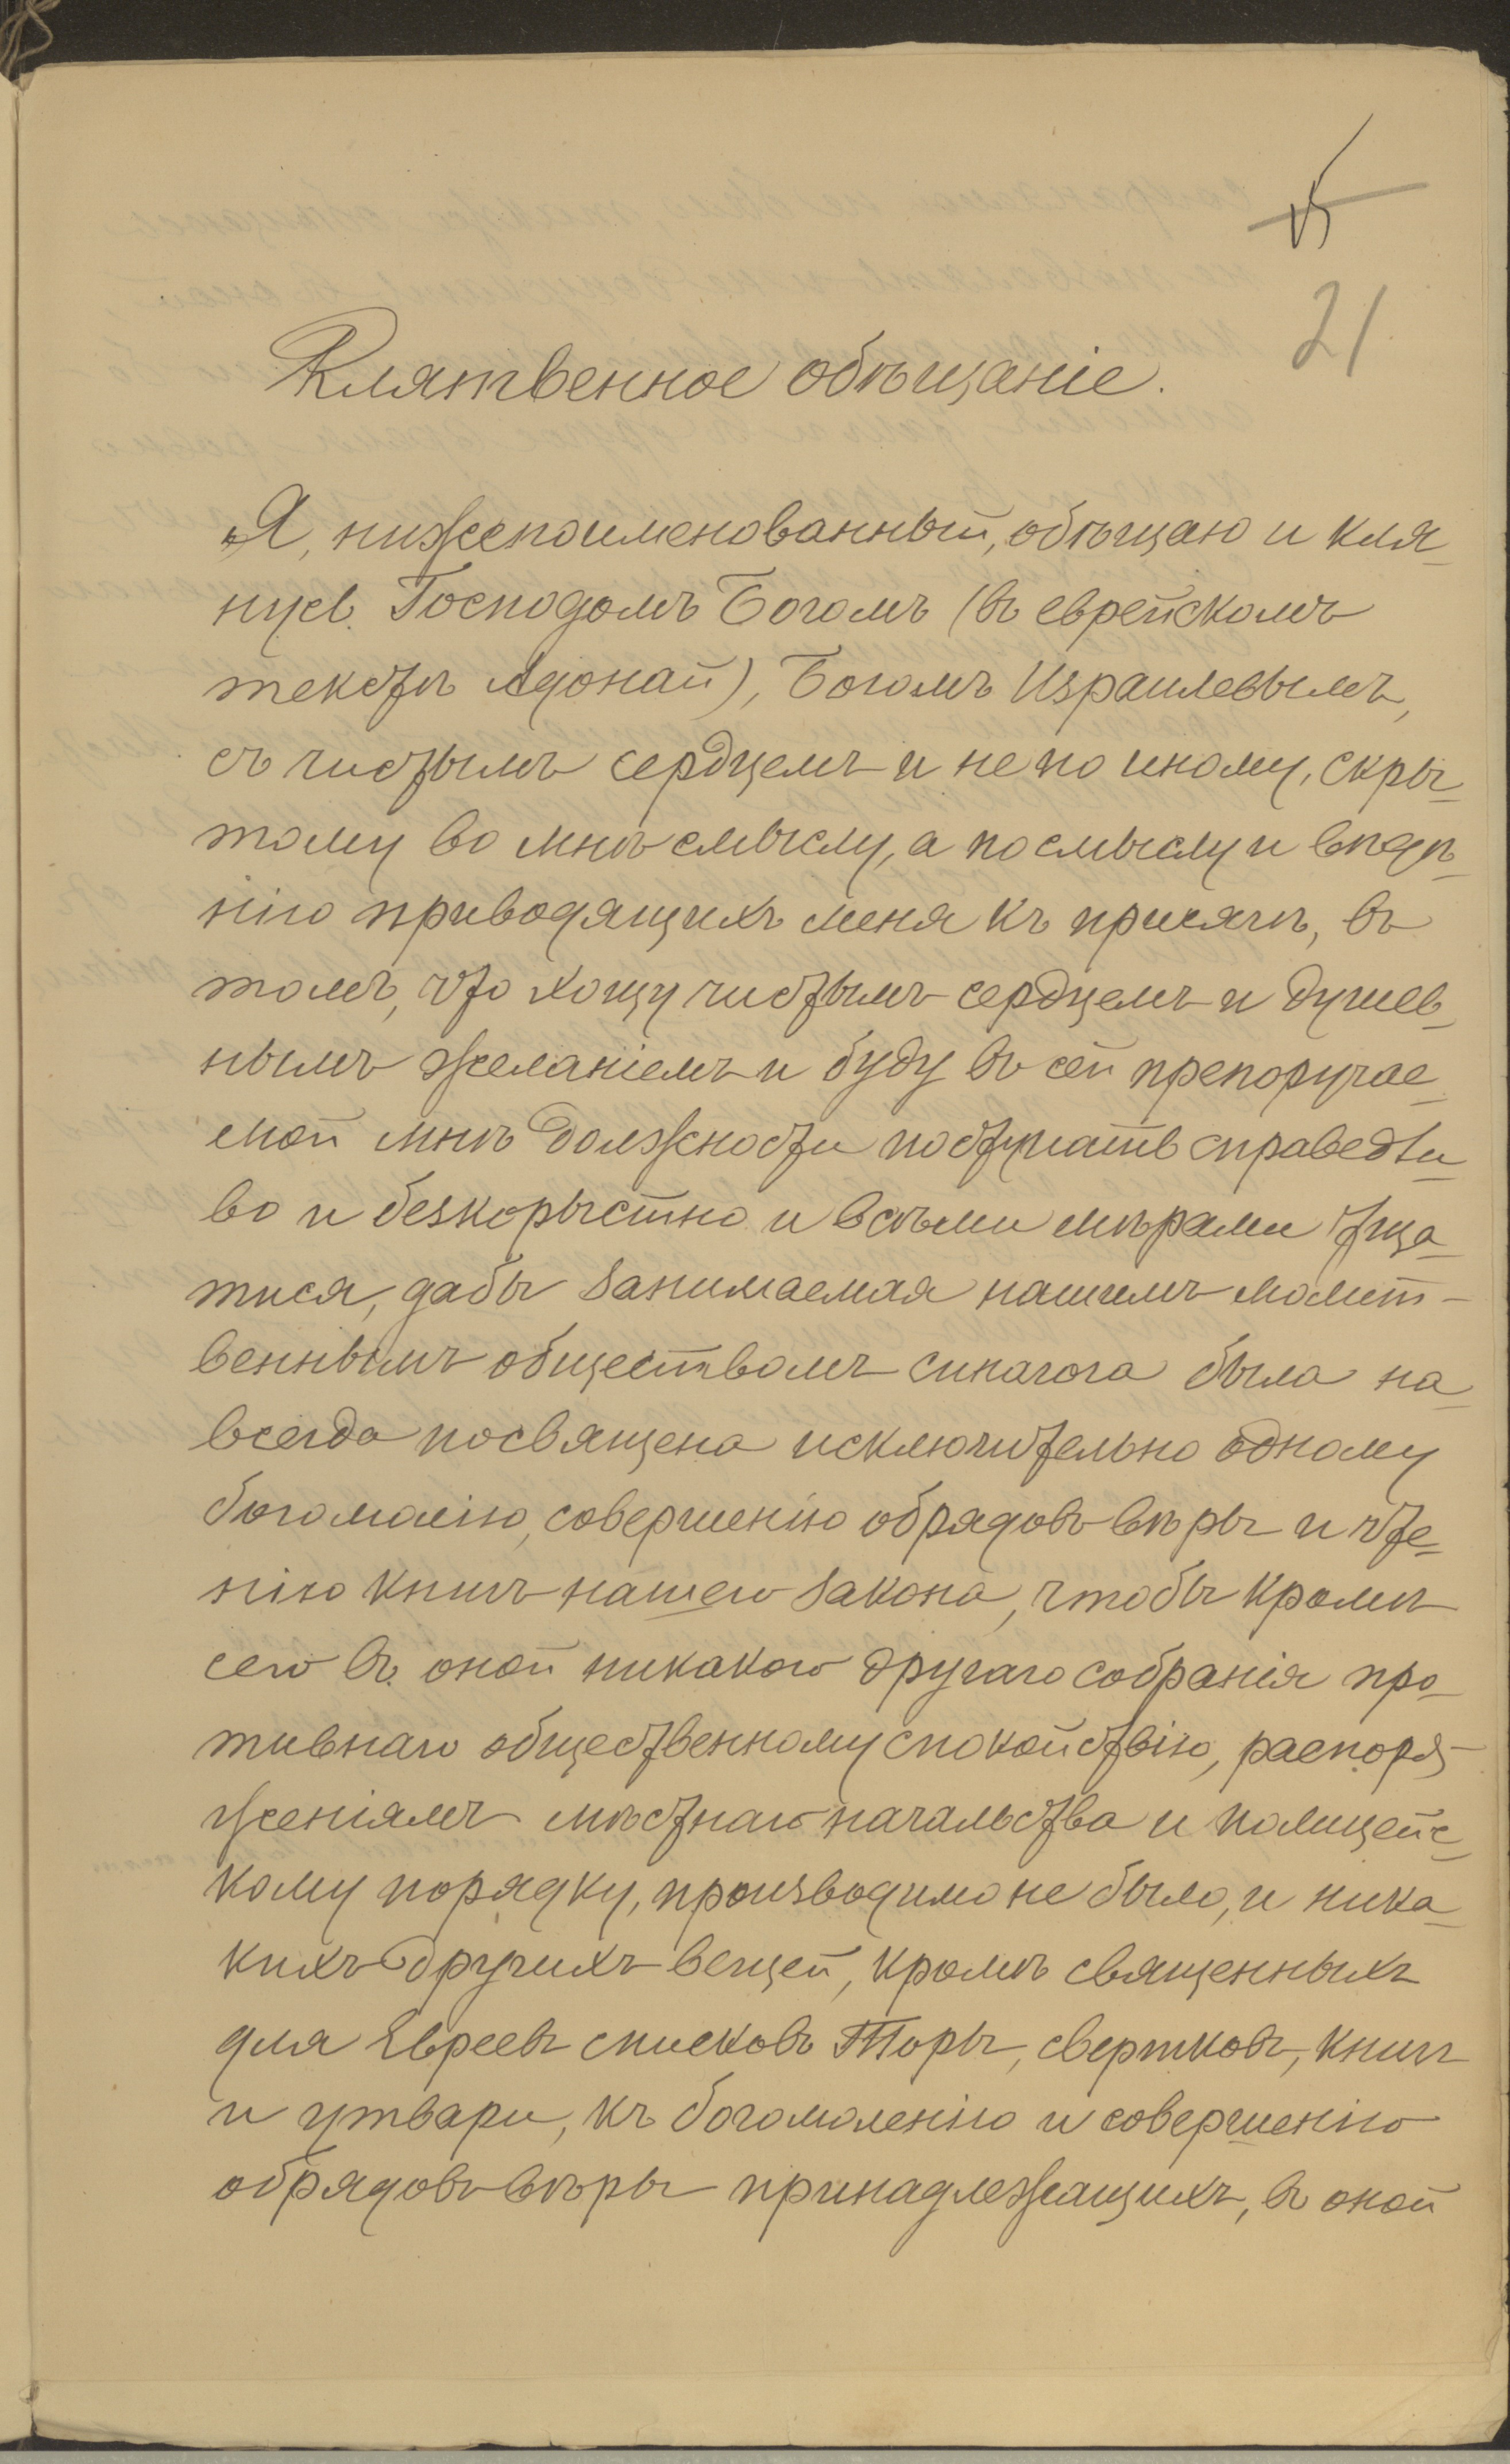 15
21
Клятвенное обѣщаніе.
Я, нижепоименованный, обѣщаю и кля-
нусь Господомъ Богомъ (въ еврейскомъ
текстѣ Адонай), Богомъ Израилевымъ,
съ чистымъ сердцемъ и не по иному, скры-
тому во мнѣ смыслу, а по смыслу и вѣдѣ-
нію приводящихъ меня къ присягѣ, въ
томъ, что хощу чистымъ сердцемъ и душев-
нымъ желаніемъ и буду въ сей препоручае-
мой мнѣ должности поступать справедли
во и безкорыстно и всѣми мѣрами тща-
тися, дабы занимаемая нашимъ молит-
веннымъ обществомъ синагога была на-
всегда посвящена исключительно одному
богомолію, совершенію обрядовъ вѣры и чте-
нію книгъ нашего закона, чтобы кромѣ
сего въ оной никакого другаго собранія про-
тивнаго общественному спокойствію, распоря-
женіямъ мѣстнаго начальства и полицейс-
кому порядку, производимо не было, и ника-
кихъ другихъ вещей, кромѣ священныхъ
для Евреевъ списковъ Торы, свертковъ, книгъ
и утвари, къ богомоленію и совершенію
обрядовъ вѣры принадлежащихъ, въ оной